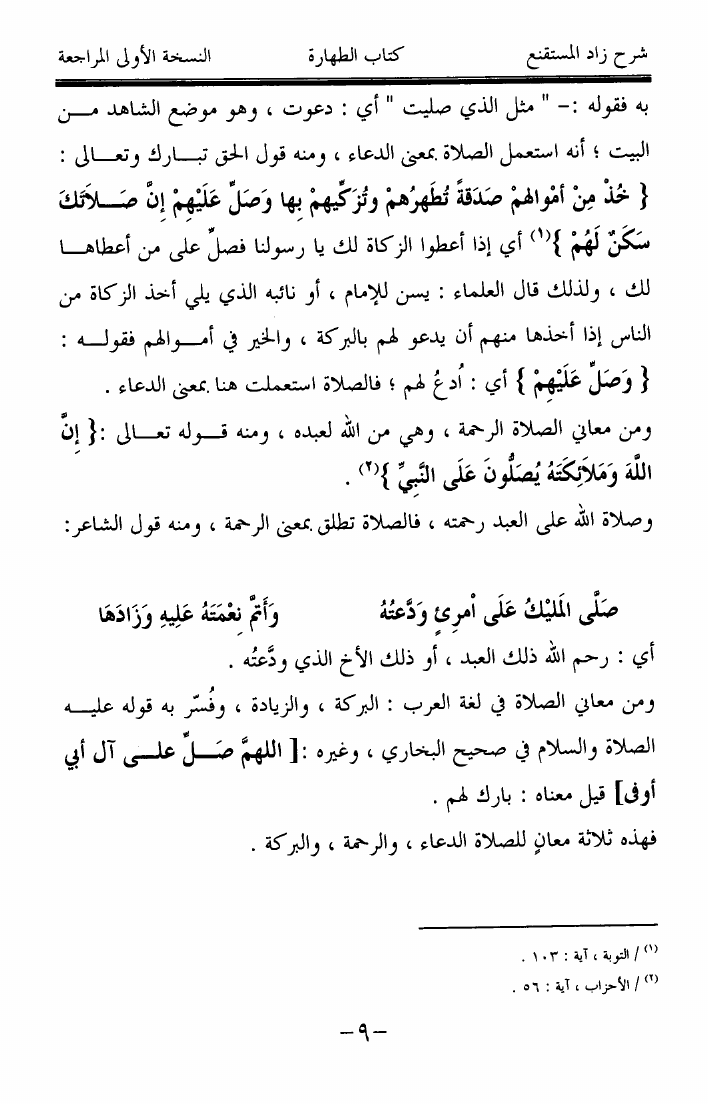 شرح زاد المستقنع كتاب الطهارة النسخة الأولى المراجعة
به فقوله :- " مثل الذي صليت " أي : دعوت ، وهو موضع الشاهد مـــن
البيت ؛ أنه استعمل الصلاة بمعنى الدعاء ، ومنه قول الحق تبـــارك وتعـــالى :
{ خُذْ مِنْ أمْوالهمْ صَدَقَةً تُطَهرُهمْ وتُزَكِّيهمْ بِها وَصَلِّ عَلَيْهِمْ إنَّ صَـــلاَتَكَ
سَكَنٌ لَهُمْ }(١) أي إذا أعطوا الزكاة لك يا رسولنا فصلِّ على من أعطاهـــا
لك ، ولذلك قال العلماء : يسن للإمام ، أو نائبه الذي يلي أخذ الزكاة من
الناس إذا أخذها منهم أن يدعو لهم بالبركة ، والخير في أمـــوالهم فقولـــه :
{ وَصَلِّ عَلَيْهِمْ } أي : اُدعُ لهم ؛ فالصلاة استعملت هنا بمعنى الدعاء .
ومن معاني الصلاة الرحمة ، وهي من الله لعبده ، ومنه قـــوله تعـــالى :{ إنَّ
اللَّهَ وَمَلاَئِكَتَهُ يُصَلُّونَ عَلَى النَّبِيِّ }(٢) .
وصلاة الله على العبد رحمته ، فالصلاة تطلق بمعنى الرحمة ، ومنه قول الشاعر:
صَلَّى الَملَيْكُ عَلَى اْمرِئٍ وَدَّعتُهُ وَأَتمَّ نِعْمَتَهُ عَلَيهِ وَزَادَهَا
أي : رحم الله ذلك العبد ، أو ذلك الأخ الذي ودَّعتُه .
ومن معاني الصلاة في لغة العرب : البركة ، والزيادة ، وفُسّر به قوله عليـــه
الصلاة والسلام في صحيح البخاري ، وغيره :[ اللهمَّ صَـــلِّ علـــى آل أبي
أوفى] قيل معناه : بارك لهم .
فهذه ثلاثة معانٍ للصلاة الدعاء ، والرحمة ، والبركة .
(١) / التوبة ، آية : ١٠٣ .
(٢) / الأحزاب ، آية : ٥٦ .
-٩-